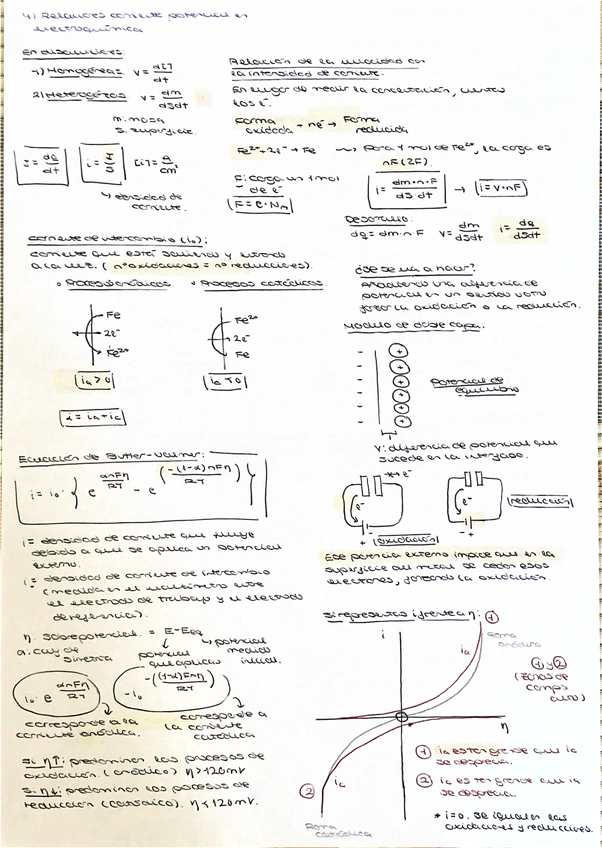 4) Relaciones corriente potencial en
electroquímica
En disoluciones:
1) Homogéneas v = d[i]/dt
2) Heterogéneas v = dm/dSdt
m: masa
S: superficie.
I = dq/dt i = I/S [i] = A/cm²
↳ densidad de
corriente.
Relación de la velocidad con
la intensidad de corriente.
En lugar de medir la concentración, contar
los e⁻.
Forma oxidada + ne⁻ → Forma reducida
Fe²⁺ + 2e⁻ → Fe ⟿ Para 1 mol de Fe²⁺, la carga es
nF (2F).
F: carga un 1 mol
de e⁻
F = e · N_A
i = dm·n·F/dS·dt → i = v·nF
Desarrollo:
dq = dm·n·F v = dm/dSdt i = dq/dSdt
Corriente de intercambio (i₀):
corriente que está saliendo y entrando
a la vez. (nº oxidaciones = nº reducciones).
• Procesos anódicos • Procesos catódicos
Fe
2e⁻
Fe²⁺
ia > 0
Fe²⁺
2e⁻
Fe
ic < 0
i = ia + ic
¿Qué se va a hacer?
Añadiendo una diferencia de
potencial en un sentido u otro
forzo la oxidación o la reducción.
Modelo de doble capa.
- +
- +
- +
- +
- +
- +
Potencial de
equilibrio
V: diferencia de potencial que
sucede en la interfase.
e⁻
e⁻
- +
oxidación
e⁻
+ -
reducción
Ese potencia externo impide que en la
superficie del metal se cedan esos
electrones, forzando la oxidación.
Ecuación de Butler-Volmer:
i = i₀ · { e^(αnFη/RT) - e^(-(1-α)nFη/RT) }
i = densidad de corriente que fluye
debido a que se aplica un potencial
externo.
i₀ = densidad de corriente de intercambio
(medida en el voltímetro entre
el electrodo de trabajo y el electrodo
de referencia).
η: sobrepotencial = E - Eeq
potencial que aplicas
potencial medido inicial.
α: coef de
simetría
i₀ · e^(αnFη/RT)
-i₀ e^(-(1-α)Fnη/RT)
corresponde a la
corriente anódica.
corresponde a
la corriente
catódica
Si η↑: predominan los procesos de
oxidación (anódico) η > 120 mV
Si η↓: predominan los procesos de
reducción (catódico). η < 120 mV.
Si represento i frente a η: ①
i
Rama
anódica
ia
① y ②
(zonas de
campo
alto)
η
ic
②
Rama
catódica
① ia es tan grande que ic
se desprecia.
② ic es tan grande que ia
se desprecia.
* i=0. Se igualan las
oxidaciones y reducciones.